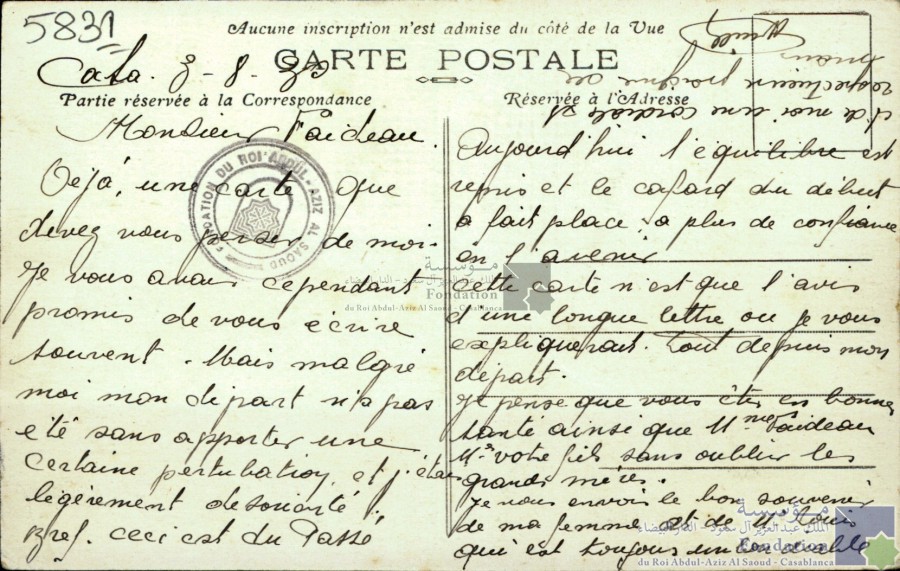 5831
Aucune inscription n'est admise du côté de la Vue
CARTE POSTALE
Casa. 8-8-
Partie réservée à la Correspondance
Réservée à l'Adresse
Monsieur Faideau.
Déjà, une carte que
devez vous penser de moi.
Je vous avais cependant
promis de vous écrire
souvent. Mais malgré
moi mon départ n'a pas
été sans apporter une
certaine perturbation, et j'étais
légèrement désorienté.
Bref. ceci est du Passé
Aujourd'hui l'équilibre est
repris et le cafard du début
a fait place a plus de confiance
en l'avenir
cette carte n'est que l'avis
d'une longue lettre ou je vous
expliquerais. tout depuis mon
départ.
Je pense que vous êtes en bonne
santé ainsi que Mme Faideau
Mr votre fils sans oublier les
grands mères.
Je vous envoie le bon souvenir
de ma femme et de Mr Louis
qui est toujours
et de moi une cordiale
poignée de
FONDATION DU ROI ABDUL-AZIZ AL SAOUD
مؤسسة
الملك عبد العزيز آل سعود - الدار البيضاء
Fondation
du Roi Abdul-Aziz Al Saoud - Casablanca
مؤسسة
الملك عبد العزيز آل سعود - الدار البيضاء
Fondation
du Roi Abdul-Aziz Al Saoud - Casablanca